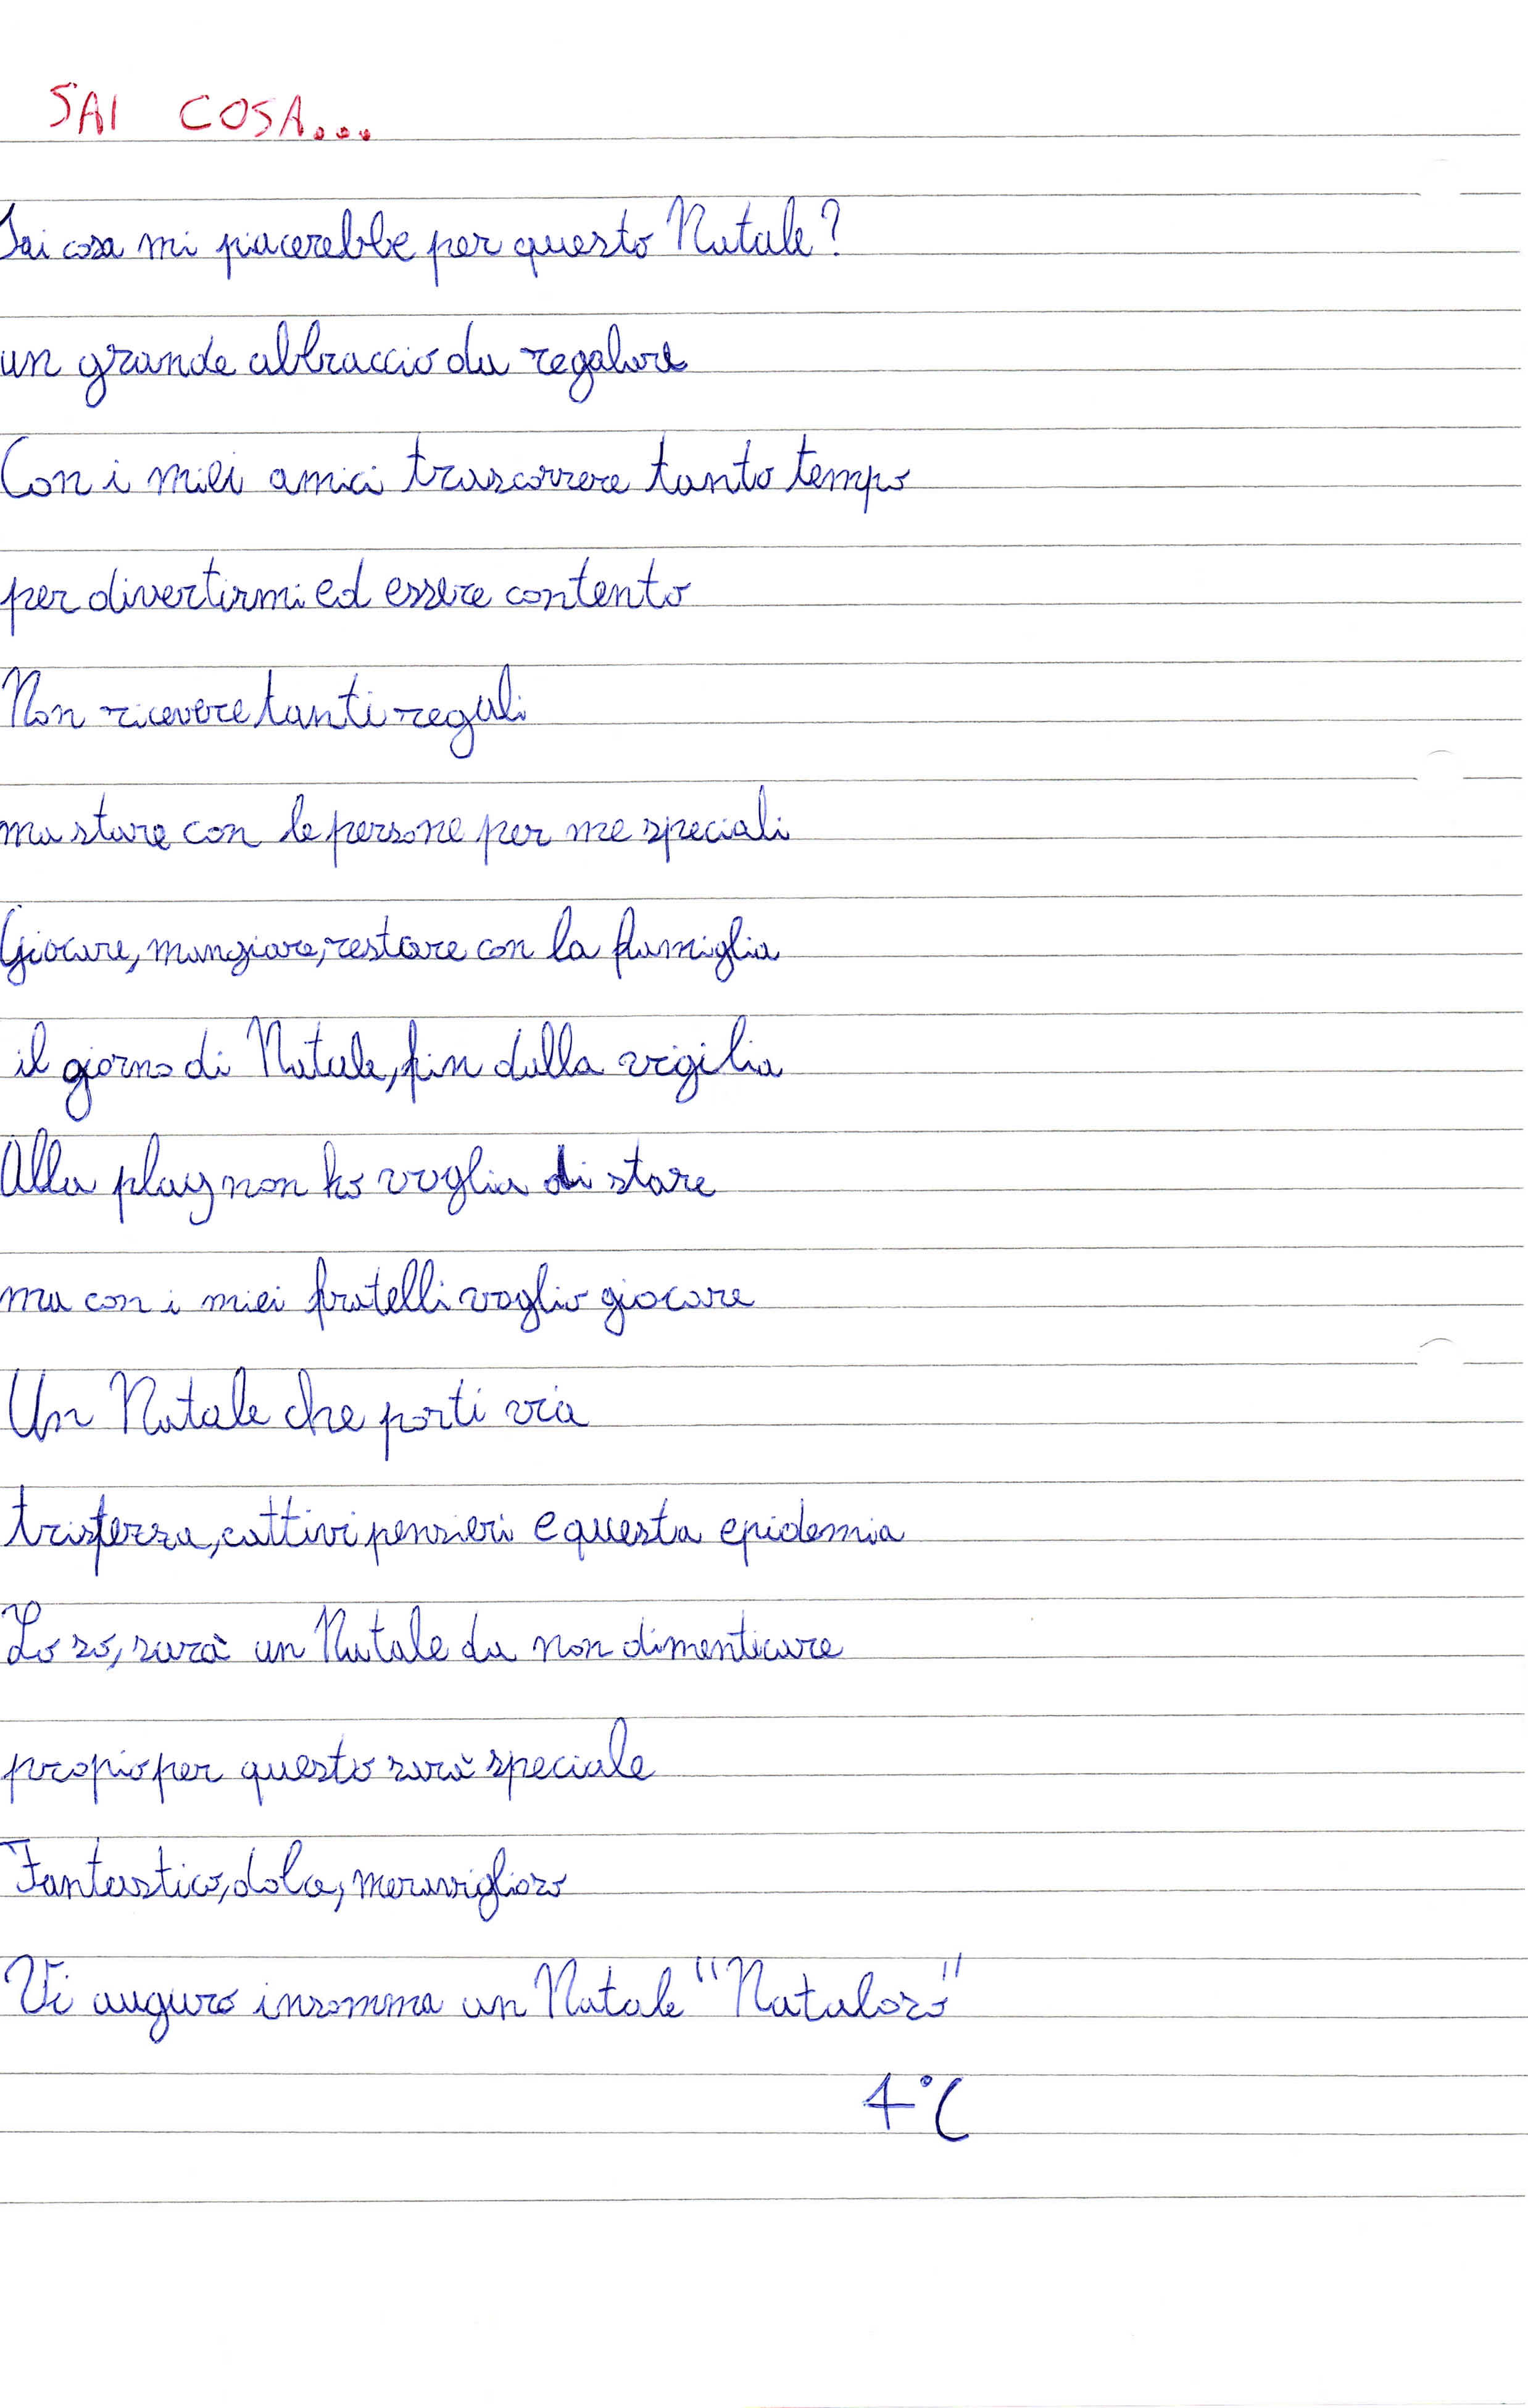 SAI COSA...
Sai cosa mi piacerebbe per questo Natale?
un grande abbraccio da regalare
Con i miei amici trascorrere tanto tempo
per divertirmi ed essere contento
Non ricevere tanti regali
ma stare con le persone per me speciali
Giocare, mangiare, restare con la famiglia
il giorno di Natale, fin dalla vigilia
Alla play non ho voglia di stare
ma con i miei fratelli voglio giocare
Un Natale che porti via
tristezza, cattivi pensieri e questa epidemia
Lo so, sarà un Natale da non dimenticare
propio per questo sarà speciale
Fantastico, dolce, meraviglioso
Vi auguro insomma un Natale "Nataloso"
4°C